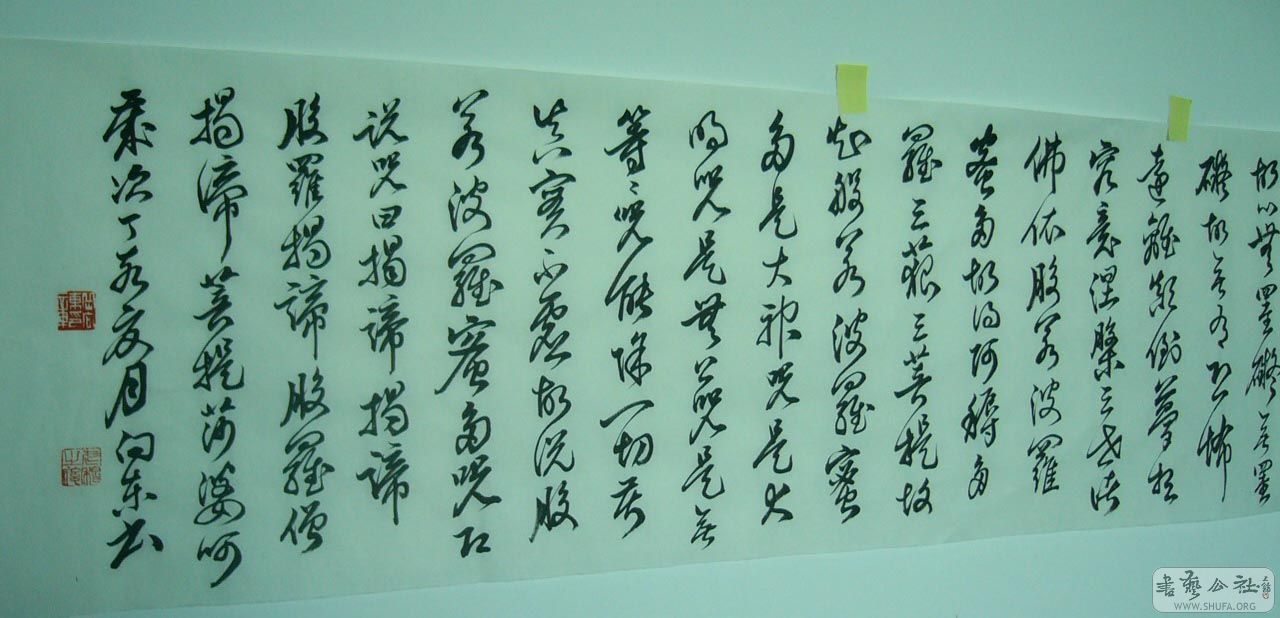 故以無罣礙無罣
礙故無有恐怖
遠離顛倒夢想
究竟涅槃三世諸
佛依般若波羅
蜜多故得阿耨多
羅三藐三菩提故
知般若波羅蜜
多是大神咒是大
明咒是無上咒是無
等等咒能除一切苦
真實不虛故说般
若波羅蜜多咒即
说咒曰揭諦揭諦
般羅揭諦般羅僧
揭諦菩提莎婆呵
歲次丁亥夏月向東书
書藝公社
WWW.SHUFA.ORG